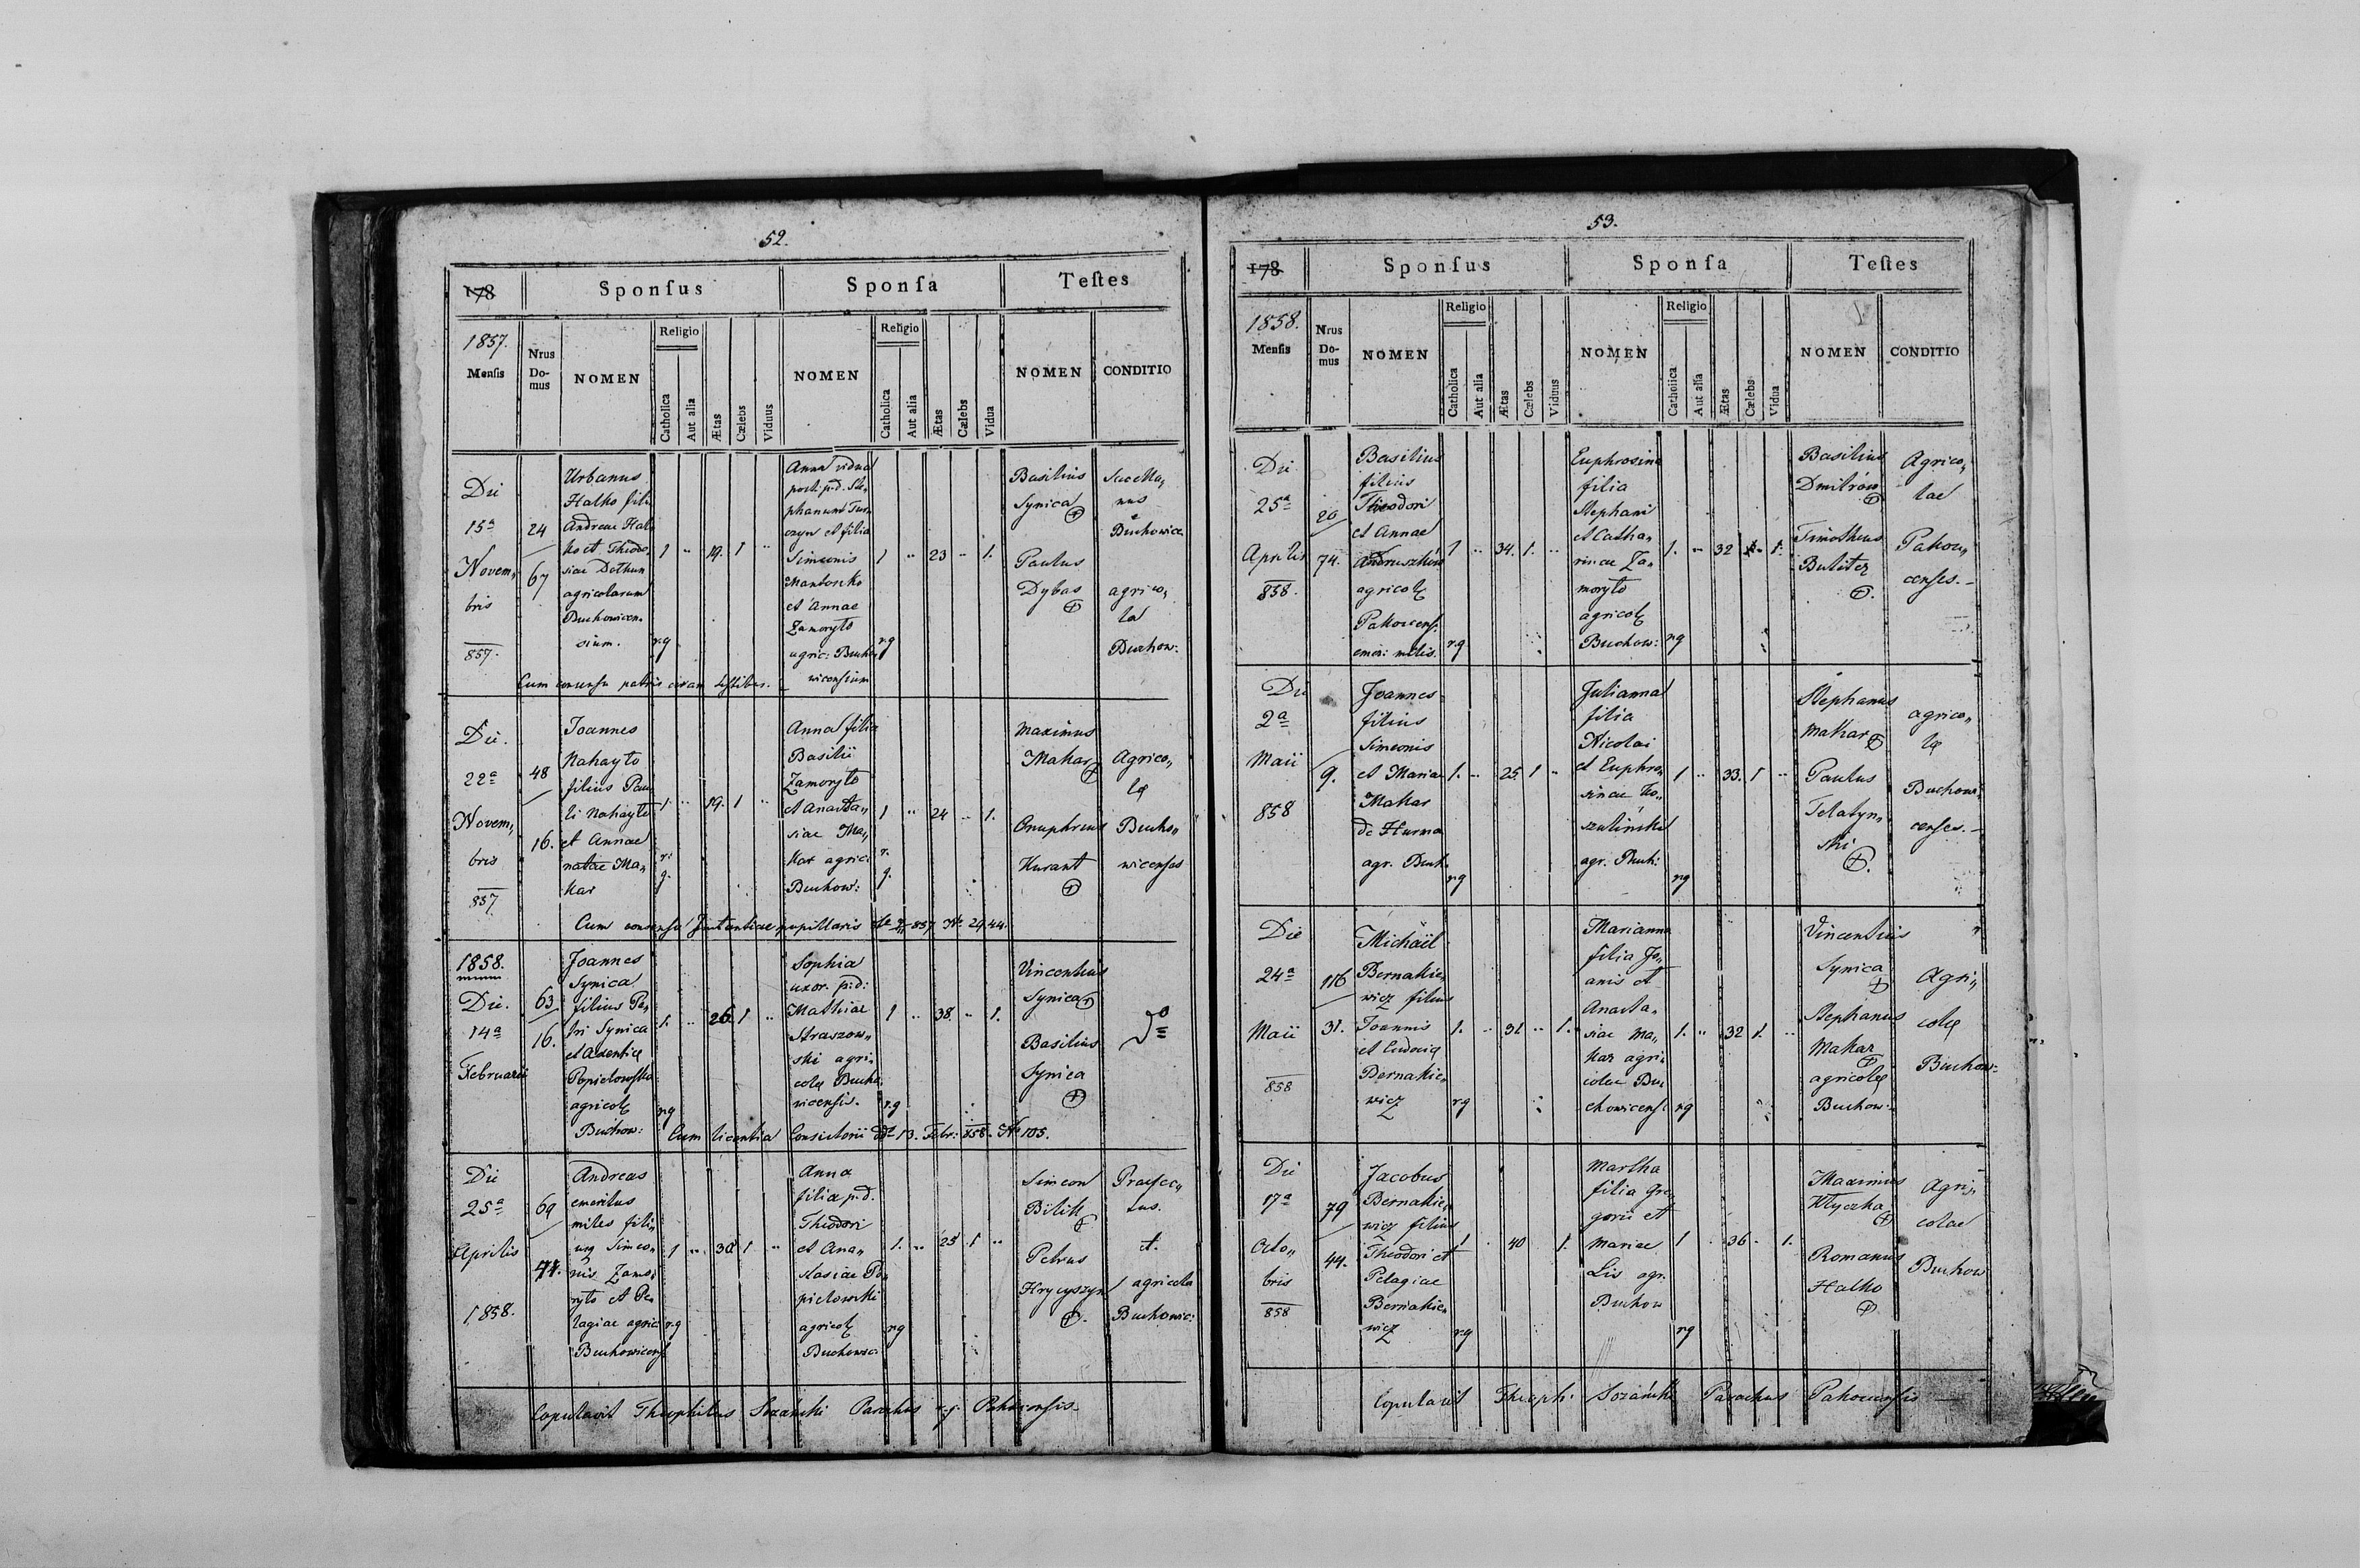 52.
178 Sponſus Sponſa Teſtes
1857. Menſis
Nrus Do- mus
NOMEN
Religio
Catholica
Aut alia
Ætas
Cælebs
Viduus
NOMEN
Religio
Catholica
Aut alia
Ætas
Cælebs
Vidua
NOMEN
CONDITIO
Die
15ª
Novem„
bris
857.
24
67
Urbanus
Halko fili
Andreae Hal
ko et Theodo„
siae
agricolarum
Buchowicen„
sium.
1 „ 19. 1 „
r.g
Anna vidua
post p.d. Ste„
phanum Tur„
czyn et filia
Simeonis
et Annae
Zamoryto
agric: Bucho„
wicensium
1 „ 23 „ 1.
r.g
Basilius
Synica
Paulus
Dybas
Buchowice
agrico„
la
Buchow:
Cum consensu patris coram testibus.
Die.
22ª
Novem„
bris
857
48
16.
Joannes
Nahayto
filius Pau„
li Nahayto
et Annae
natae Ma„
kar
1. „ 19. 1 „
r. g.
Anna filia
Basilii
Zamoryto
et Anasta„
siae Ma„
kar agric:
Buchow:
1 „ 24 „ 1.
r. g.
Maximus
Makar
Onuphrius
Kurant
Agrico„
lae
Bucho„
wicenses
Cum consensu Instantiae pupillaris 857 Nr. 2944.
1858.
Die.
14ª
Februarii
63
16.
Joannes
Synica
filius Pe„
tri Synica
et Axentiae
agricol
Buchow:
1. „ 26 1 „
r.g
Sophia
uxor p.d:
Mathiae
Straszow„
ski agri„
colae Bucho„
wicensis.
1 „ 38. „ 1.
r.g
Vincentius
Synica
Basilius
Synica
Dº
Cum licentia Consistorii ddº 13. Febr: 858. Nº 105.
Die
25ª
Aprilis
1858.
69
Andreas
emeritus
miles fili„
us Simeo„
nis Zamo„
ryto et Pe„
lagiae agric
Buchowicens
1 „ 30 1 „
r.g
Anna
filia p.d.
Theodori
et Ana„
stasiae Po„
pielowski
agricol
Buchowic:
1. „ 25 1 „
r.g
Simeon
Bilik
Petrus
Hrycyszyn
Praefec„
tus.
et.
agricola
Buchowic:
Copulavit Theophilus Sozański Parochus r.g. Pakocensis.
53.
178 Sponſus Sponſa Teſtes
1858. Menſis
Nrus Do- mus
NOMEN
Religio
Catholica
Aut alia
Ætas
Cælebs
Viduus
NOMEN
Religio
Catholica
Aut alia
Ætas
Cælebs
Vidua
NOMEN
CONDITIO
Die
25ª
Aprilis
858.
20
74.
Basilius
filius
Theodori
et Annae
agricol
Pakocens:
emer: milis.
1 „ 34. 1. „
r.g
Euphrosina
filia
Stephani
et Catha„
rinae Za„
moryto
agricol
Buchow:
1. „ 32 1.
r.g
Basilius
Dmitrów
Timotheus
Agrico„
lae
Pakow„
censes.
Die
2ª
Maii
858
9.
Joannes
filius
Simeonis
et Mariae
Makar
de Hurma
agr. Buch.
1. „ 25. 1 „
rg
Julianna
filia
Nicolai
et Euphro„
sinae Ko„
agr. Buch:
1 „ 33. 1 „
rg
Stephanus
Makar
Paulus
Telatyn„
ski
agrico„
lae
Buchowi„
censes.
Die
24ª
Maii
858
116
31.
Michaël
Bernakie„
wicz filius
Joannis
et Eudociae
Bernakie„
wicz
1. „ 31 „ 1.
r.g
Marianna
filia Jo„
anis et
Anasta„
siae Ma„
kar agri„
colae Bu„
chowicens:
1. „ 32 1. „
r.g
Vincentius
Synica
Stephanus
Makar
agricolae
Buchow:
Agri„
colae
Buchow:
Die
17ª
Octo„
bris
858
79
44.
Jacobus
Bernakie„
wicz filius
Theodori et
Pelagiae
Bernakie„
wicz
1 „ 40 1.
r.g
Martha
filia Gre„
gorii et
Mariae
Lis agr.
Buchow
1 „ 36 „ 1.
r.g
Maximus
Klyczka
Romanus
Halko
Agri„
colae
Buchow
Copulavit Theoph: Sozański Parochus Pakocensis